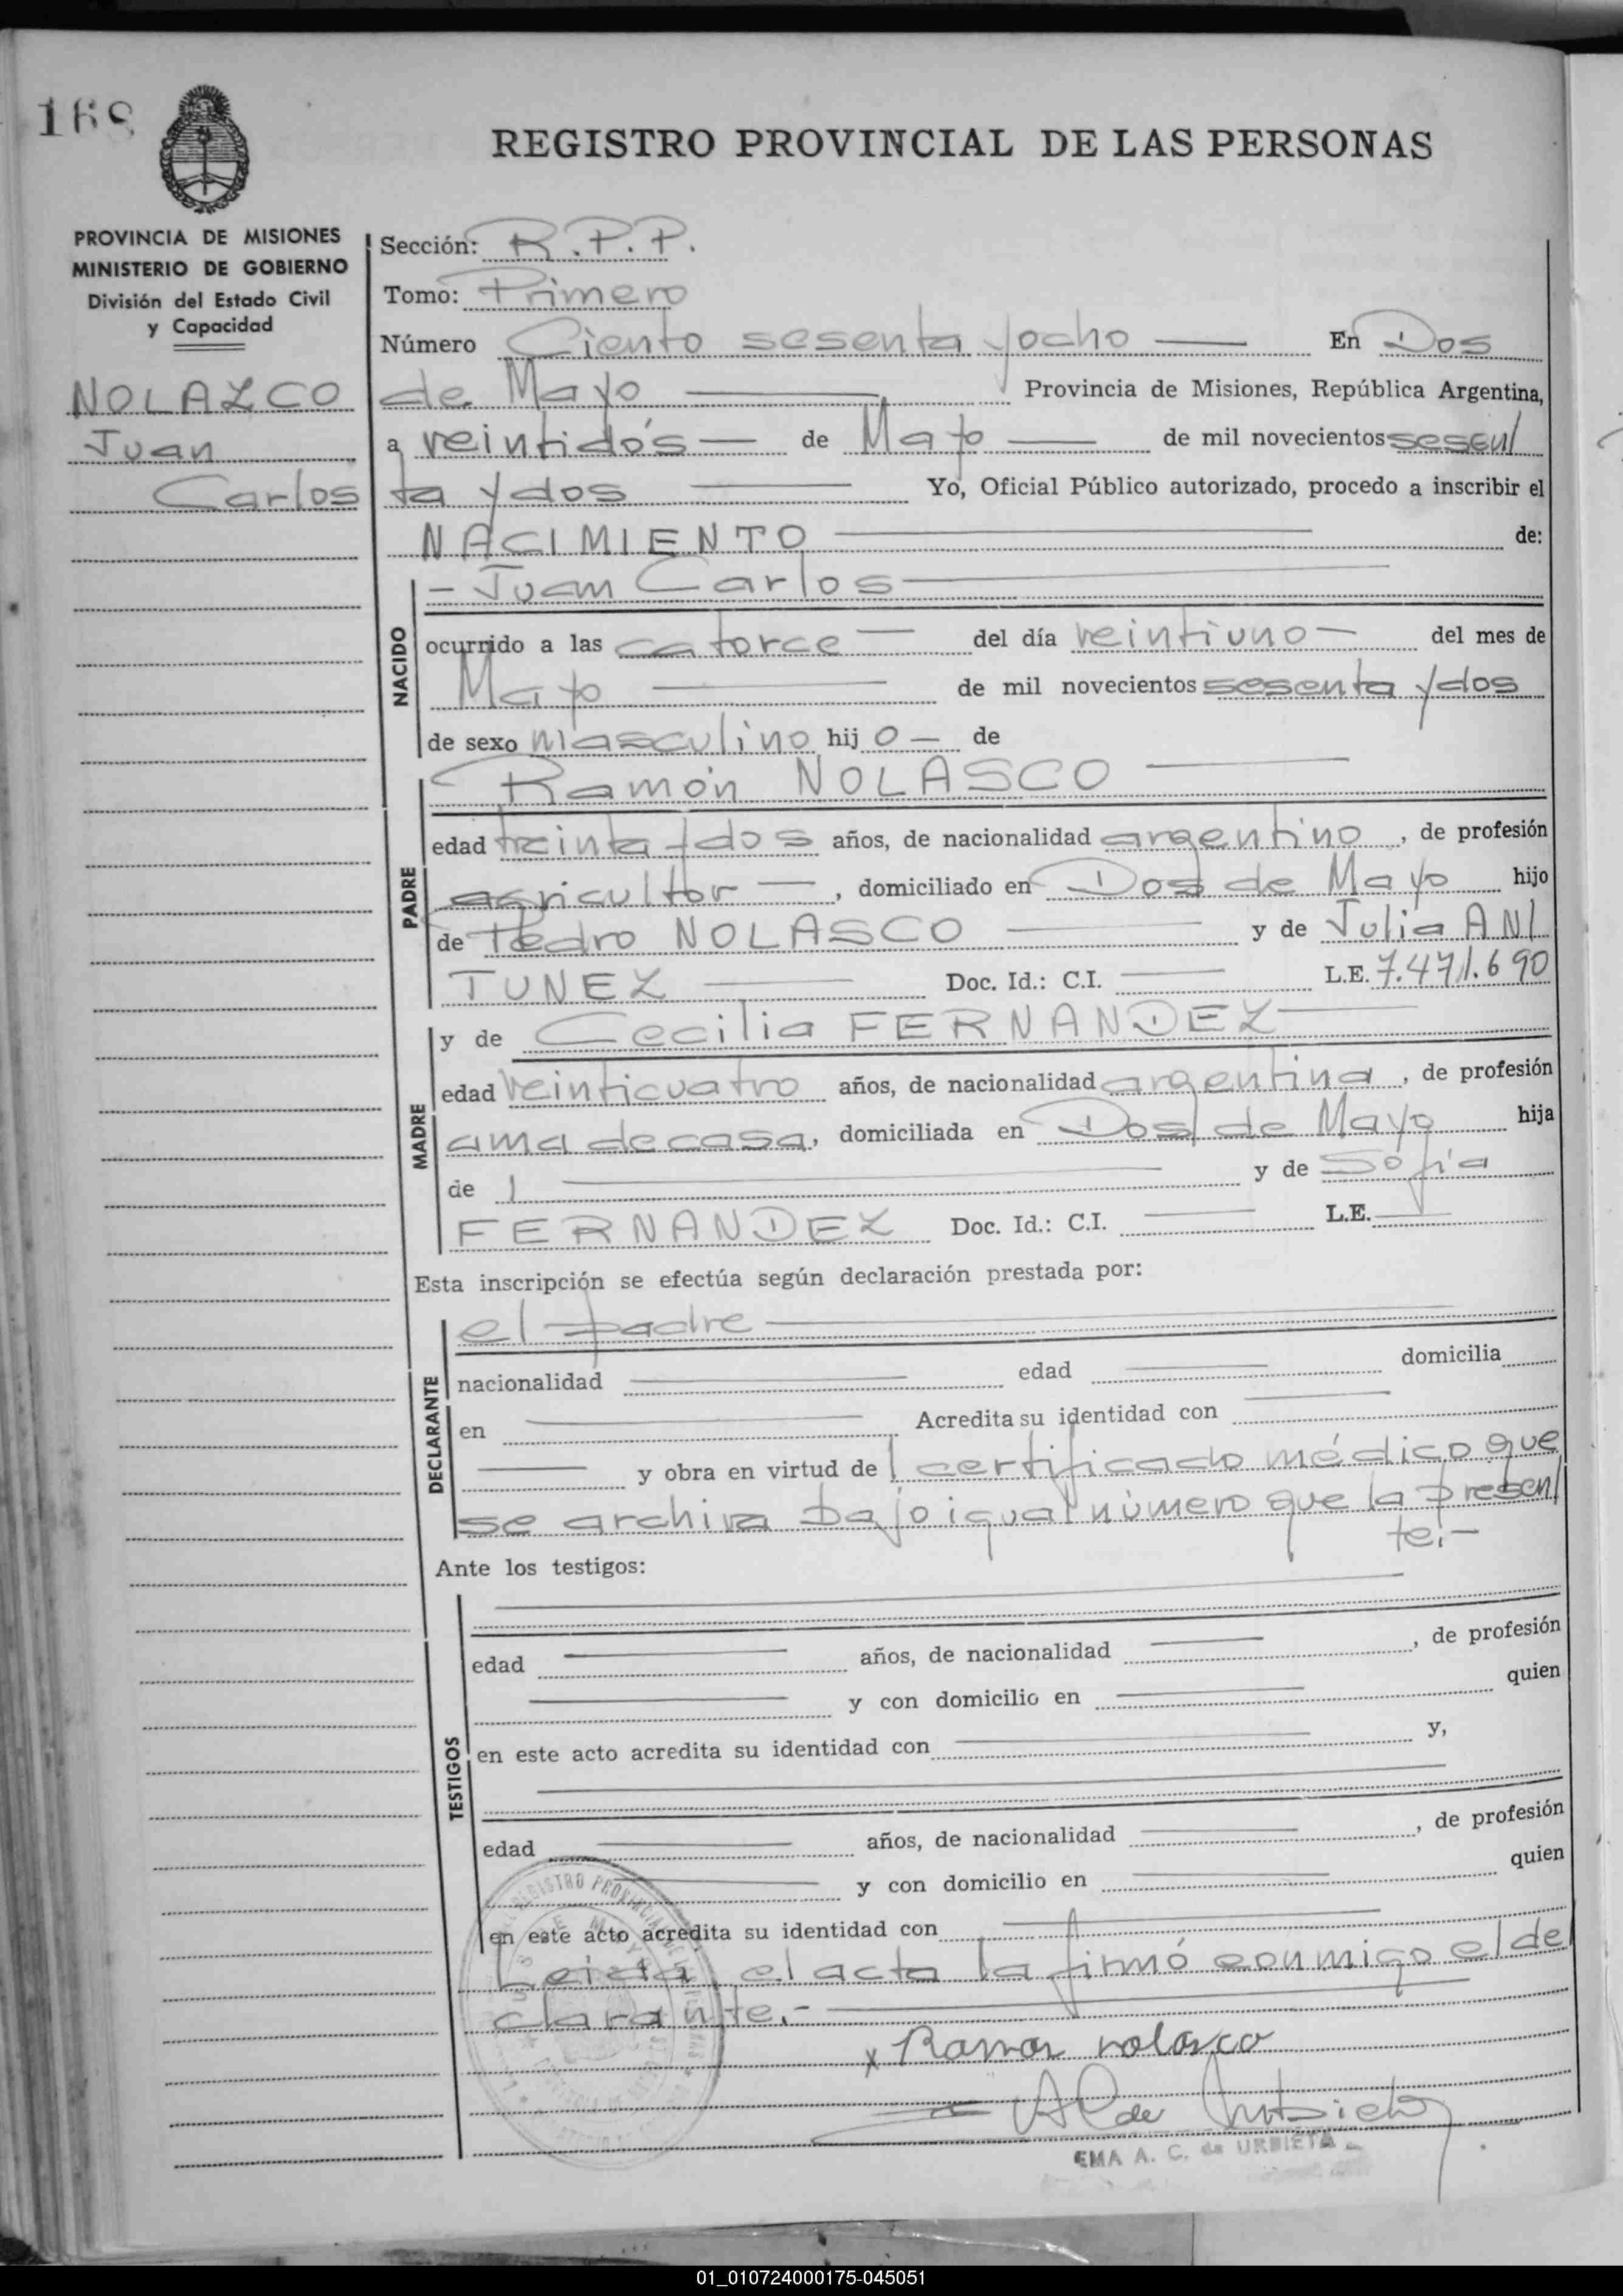 168
REGISTRO PROVINCIAL DE LAS PERSONAS
PROVINCIA DE MISIONES
MINISTERIO DE GOBIERNO
División del Estado Civil
y Capacidad
NOLAZCO
Juan
Carlos
Sección: R.P.P.
Tomo: Primero
Número Ciento sesenta y ocho — En Dos
de Mayo — Provincia de Misiones, República Argentina,
a veintidós — de Mayo — de mil novecientos sesen/
ta y dos — Yo, Oficial Público autorizado, procedo a inscribir el
NACIMIENTO — de:
NACIDO
— Juan Carlos —
ocurrido a las catorce — del día veintiuno — del mes de
Mayo — de mil novecientos sesenta y dos
de sexo masculino hij o — de
PADRE
Ramón NOLASCO —
edad treinta y dos años, de nacionalidad argentino, de profesión
agricultor —, domiciliado en Dos de Mayo hijo
de Pedro NOLASCO — y de Julia AN/
TUNEZ — Doc. Id.: C.I. — L.E. 7.471.690
MADRE
y de Cecilia FERNANDEZ —
edad veinticuatro años, de nacionalidad argentina, de profesión
ama de casa, domiciliada en Dos de Mayo hija
de — y de Sofía
FERNANDEZ Doc. Id.: C.I. — L.E. —
Esta inscripción se efectúa según declaración prestada por:
DECLARANTE
el padre —
nacionalidad — edad — domicilia
en — Acredita su identidad con —
— y obra en virtud de l certificado médico que
se archiva bajo igual número que la presen/
te.-
Ante los testigos:
TESTIGOS
edad — años, de nacionalidad —, de profesión
— y con domicilio en — quien
en este acto acredita su identidad con — y,
edad — años, de nacionalidad —, de profesión
— y con domicilio en — quien
en este acto acredita su identidad con —
Leída el acta la firmó conmigo el de/
clarante.- —
x Ramon nolasco
EMA A. C. de URBIETA
01_010724000175-045051